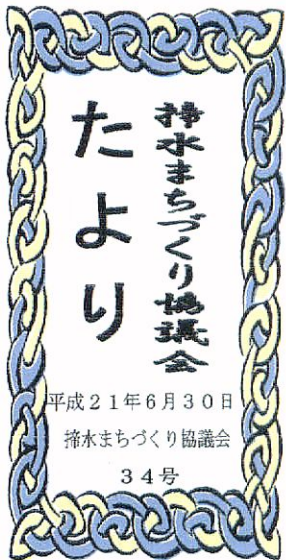 揥水まちづくり協議会
たより
平成21年6月30日
揥水まちづくり協議会
34号